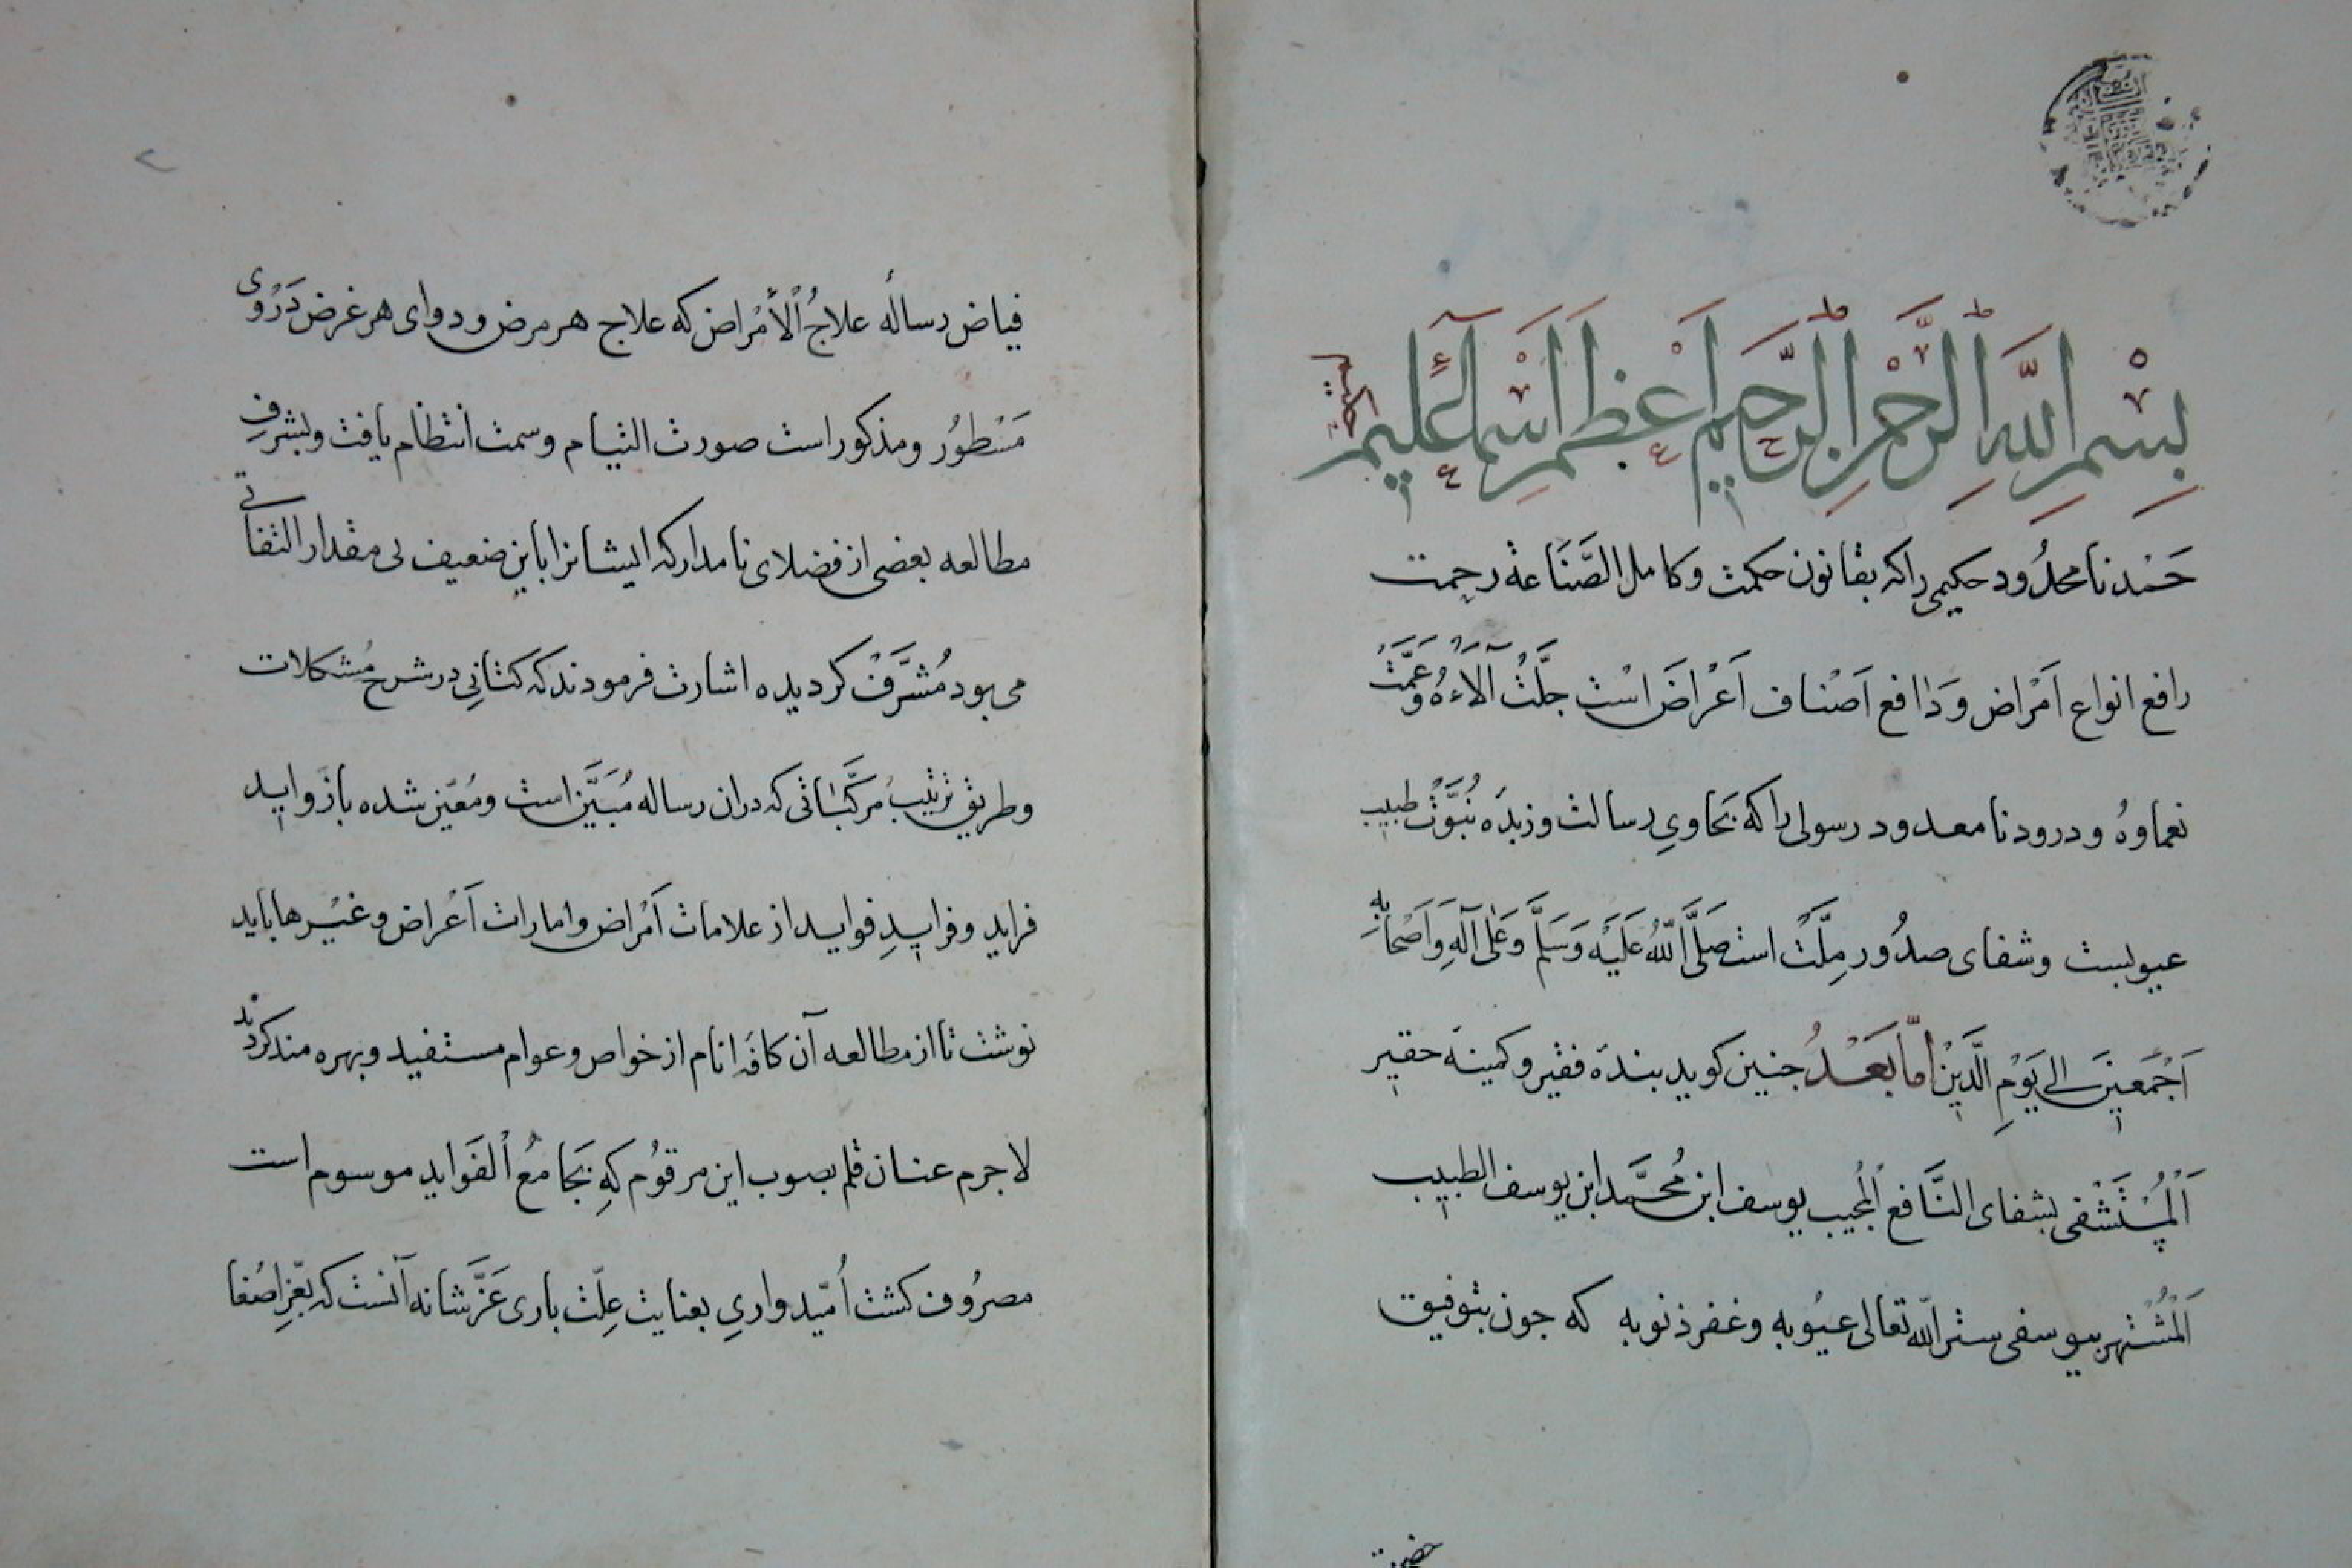 بِسْمِ اللَّهِ الرَّحْمٰنِ الرَّحِيمِ اَعْظَمِ اَسْمَآءِ عَلِيمِ حكيم
حَمْد نا محدُود حكيمى را كه بقانون حكمت و كامل الصَّنَاعة رحمت
رافع انواع اَمْراض و دَافع اَصْناف اَعْراضَ است جلَّتْ آلَاءُهُ وَعَمَّتْ
نعماوهُ و درود نا معدود رسولى را كه بحَاوىِ رسالت و زبدَه نُبُوَّتْ طبيب
عيوبست و شفاى صدُور مِلَّتْ است صَلَّى اللهُ عَلَيْهِ وَسَلَّمَ وَعَلٰى آلِهِ وَاَصْحَابِهِ
اَجْمَعِينَ الى يَوْمِ الَّدِينْ امّا بَعْدُ جنين كويد بندۀ فقير و كمينۀ حقير
اَلْمُسْتَشْفى بشفاى النَّافع اْلمُجيب يوسف ابن مُحَمَّد ابن يوسف الطبيب
اَلْمُشْتهر بيوسفى ستر اللّٰه تعالى عيُوبه و غفر ذنوبه كه جون بتوفيق
فياض رسالۀ علاجُ اْلأَمْراض كه علاج هر مرض و دواى هر غرض دَرْوى
مَسْطوُر و مذكور است صورت التيام و سمت انتظام يافت و بشرفِ
مطالعه بعضى از فضلاى نامدار كه ايشانرا باين ضعيف بى مقدار التفاتى
مى بود مُشَّرَفْ كرديده اشارت فرمودند كه كتابى در شرح مُشكلات
و طريق ترتيب مركَّبٰاتى كه دران رساله مُبَيَّن است و مُعيّن شده با زوايد
فرايد و فرايدِ فوايد از علامات اَمْراض و امارات اَعْراض و غيْرها بايد
نوشت تا از مطالعه آن كافه انام از خواص و عوام مستفيد و بهره مند كردند
لا جرم عنان قلم بصوب اين مرقوُم كهِ بجَامعُ اْلفَوايد موسوم است
مصرُوف كشت اُمّيدوارىِ بعنايت عِلّت بارى عَزَّ شانه آنست كه بعّزِ اصْغا